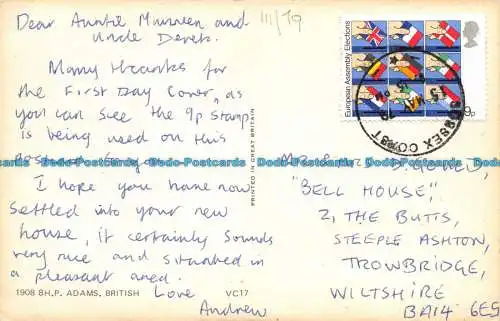 Dear Auntie Maureen and
Uncle Derek.
Many thanks for
the First Day Cover, as
you can see the 9p stamp
is being used on this
I hope you have now
settled into your new
house, it certainly sounds
very nice and situated in
a pleasant area.
Love
Andrew
1908 8H.P. ADAMS, BRITISH
VC17
PRINTED IN GREAT BRITAIN
III/79
European Assembly Elections
9p
SUSSEX COAST
"BELL HOUSE",
2, THE BUTTS,
STEEPLE ASHTON,
TROWBRIDGE,
WILTSHIRE
BA14 6ES
Dodo-Postcards Dodo-Postcards Dodo-Postcards Dodo-Postcards Dodo-Postcards